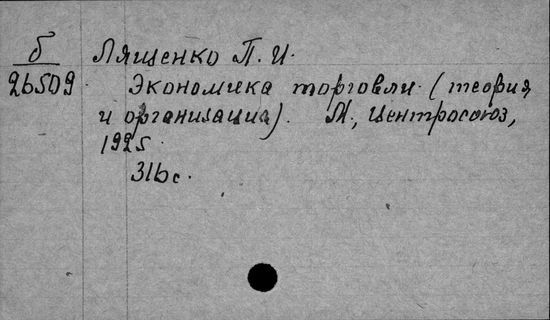 б Лященко П. И.
26509. Экономика торговли. (теория
и организация). М., Центросоюз,
1925.
316 с.